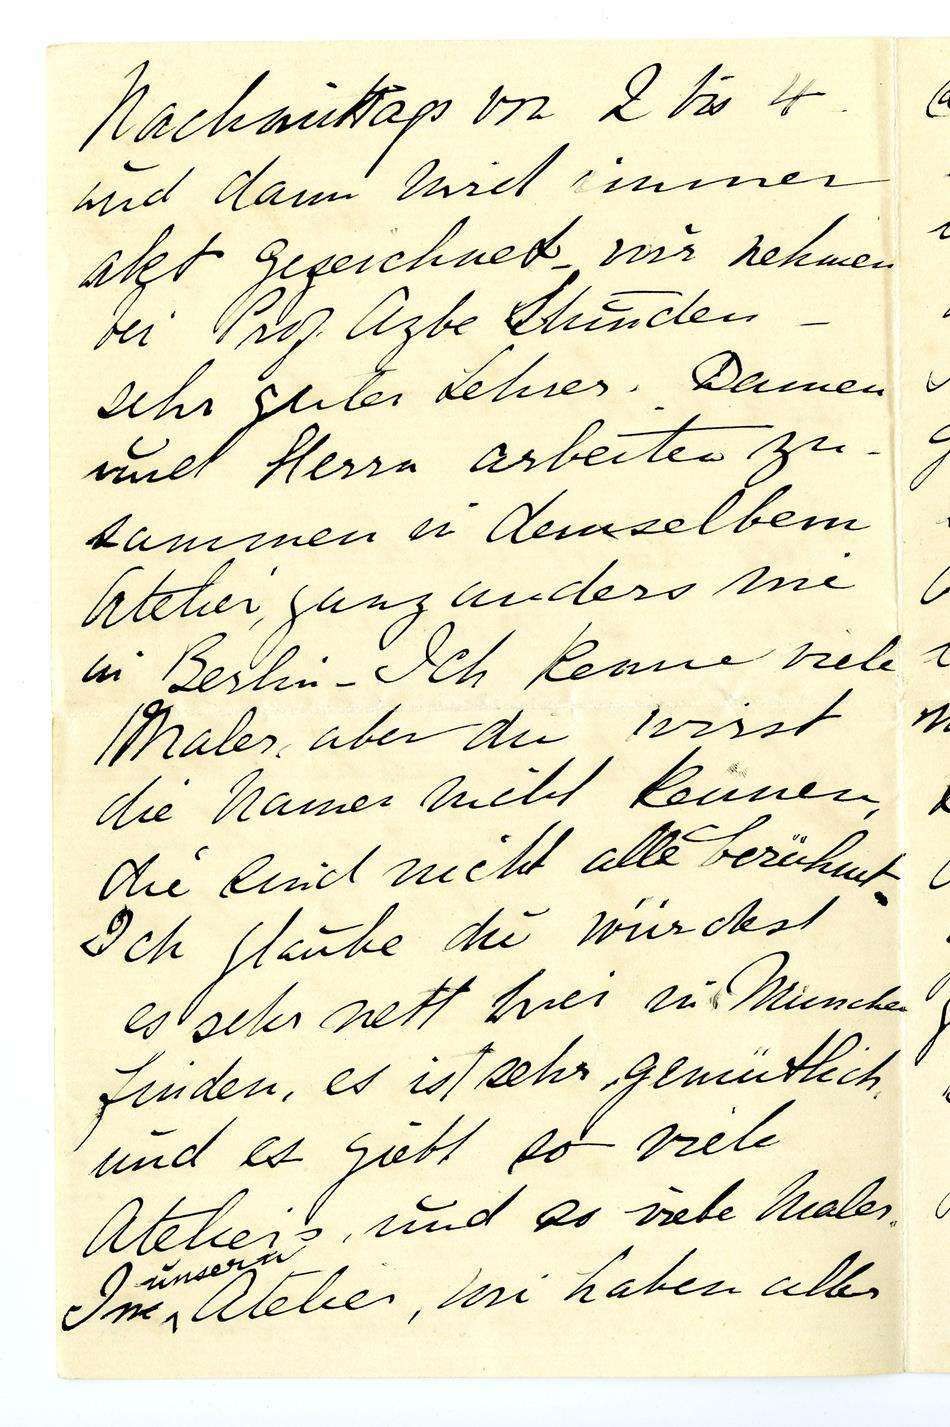 Nachmittags von 2 bis 4
und dann wird immer
akt gezeichnet – wir nehmen
bei Prof. Azbe Stunden –
sehr guter Lehrer. Damen
und Herrn arbeiten zu-
sammen in demselbem
Atelier, ganz anders wie
in Berlin – Ich kenne viele
Maler, aber du wirst
die Namen nicht kennen,
die sind nicht alle berühmt.
Ich glaube du würdest
es sehr nett hier in München
finden, es ist sehr gemütlich,
und es giebt so viele
Ateliers, und so viele Maler.
Im unsern Atelier, wir haben alles